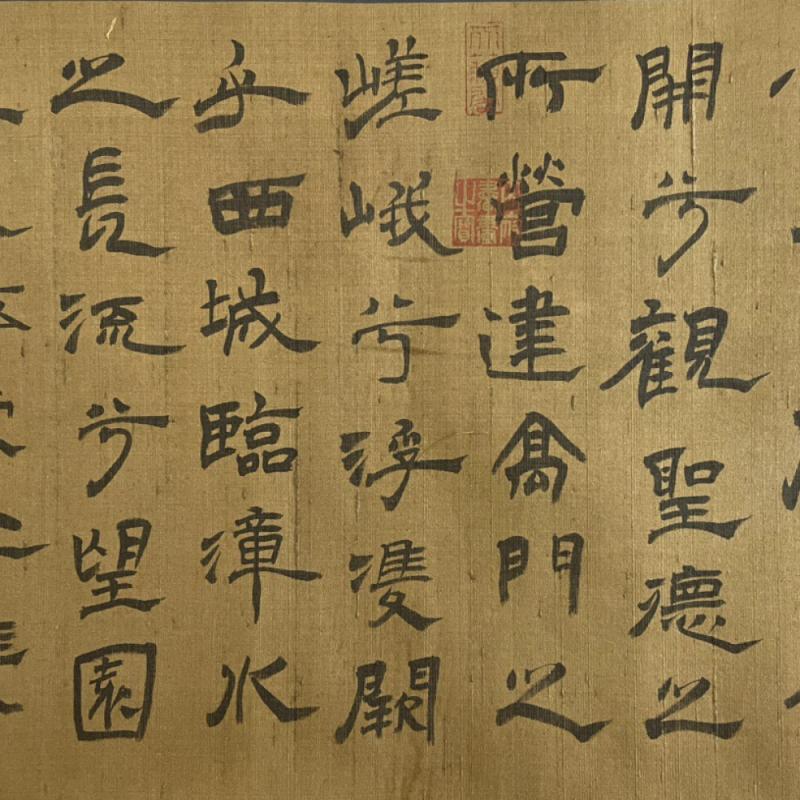 開兮觀聖德之
所營建高門之
嵯峨兮浮雙闕
乎西城臨漳水
之長流兮望園